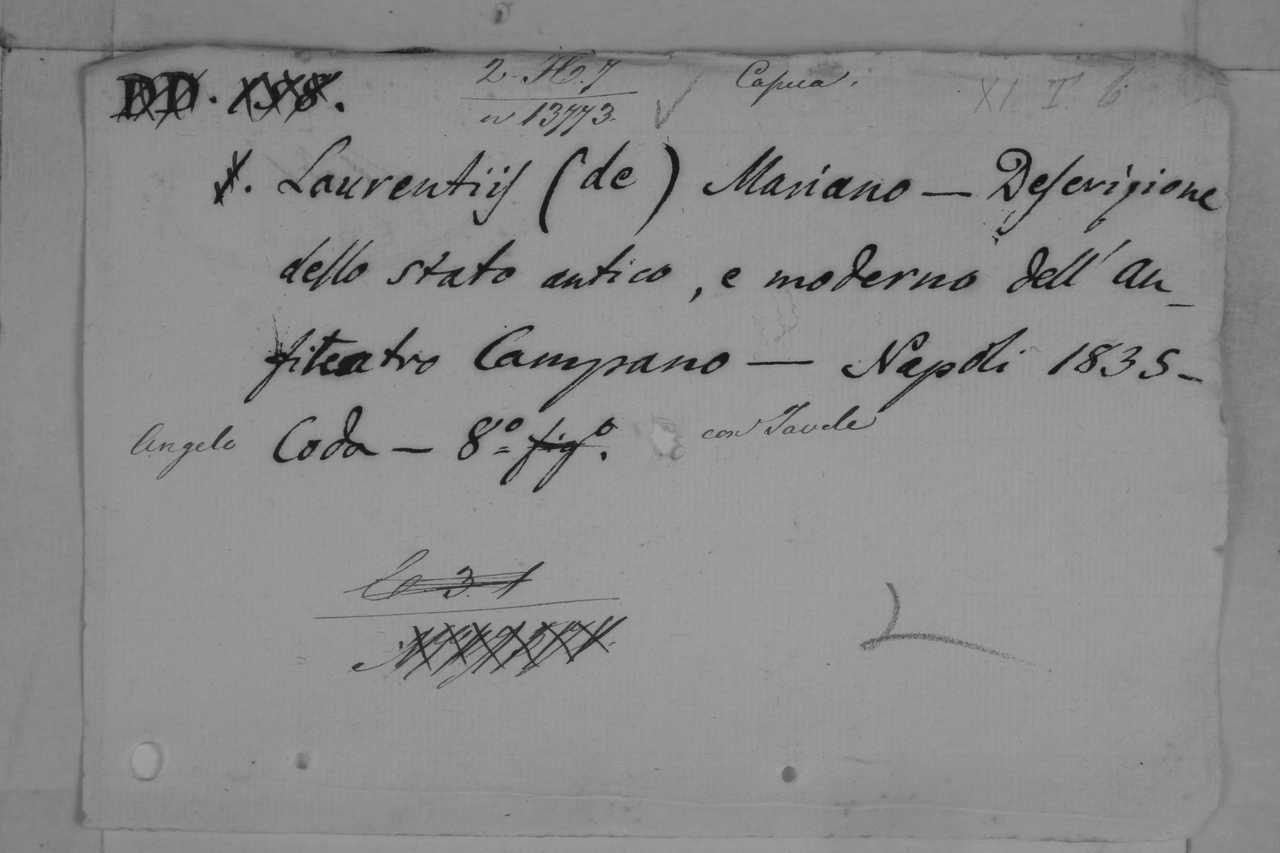 2. H. 7 Capua. XI. I. 6
n 13773.
Laurentiis (de) Mariano — Descrizione
dello stato antico, e moderno dell' an_
fiteatro Campano — Napoli 1835 -
Angelo Coda — 8.º fig.º con Tavole